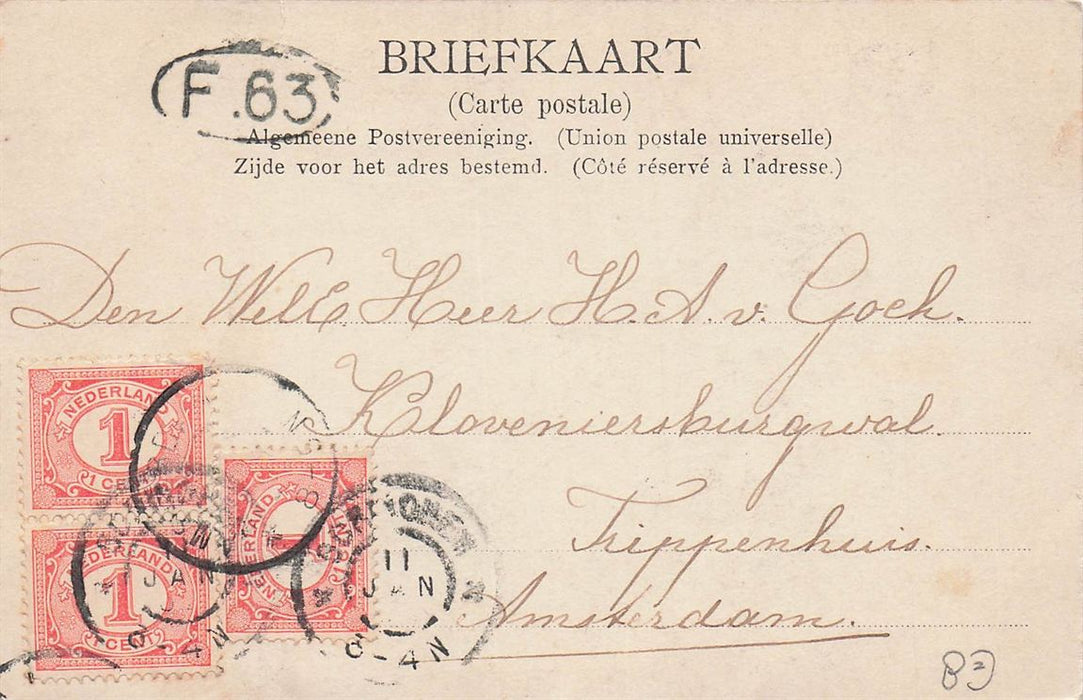 BRIEFKAART
F.63
(Carte postale)
Algemeene Postvereeniging. (Union postale universelle)
Zijde voor het adres bestemd. (Côté réservé à l'adresse.)
Den WelE Heer H. A. v. Goch.
Kloveniersburgwal.
Trippenhuis.
Amsterdam.
NEDERLAND
1
1 CENT
NEDERLAND
1
NEDERLAND
1
1 CENT
JAN
8-4N
11
JAN
8-4N